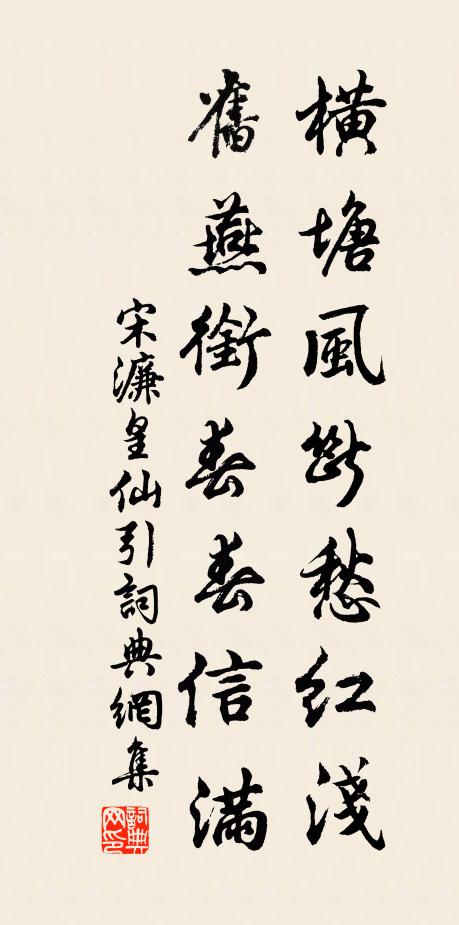 橫塘風斷愁紅淺
舊燕銜春春信滿
宋濂皇仙引詞典網集
詞典網印